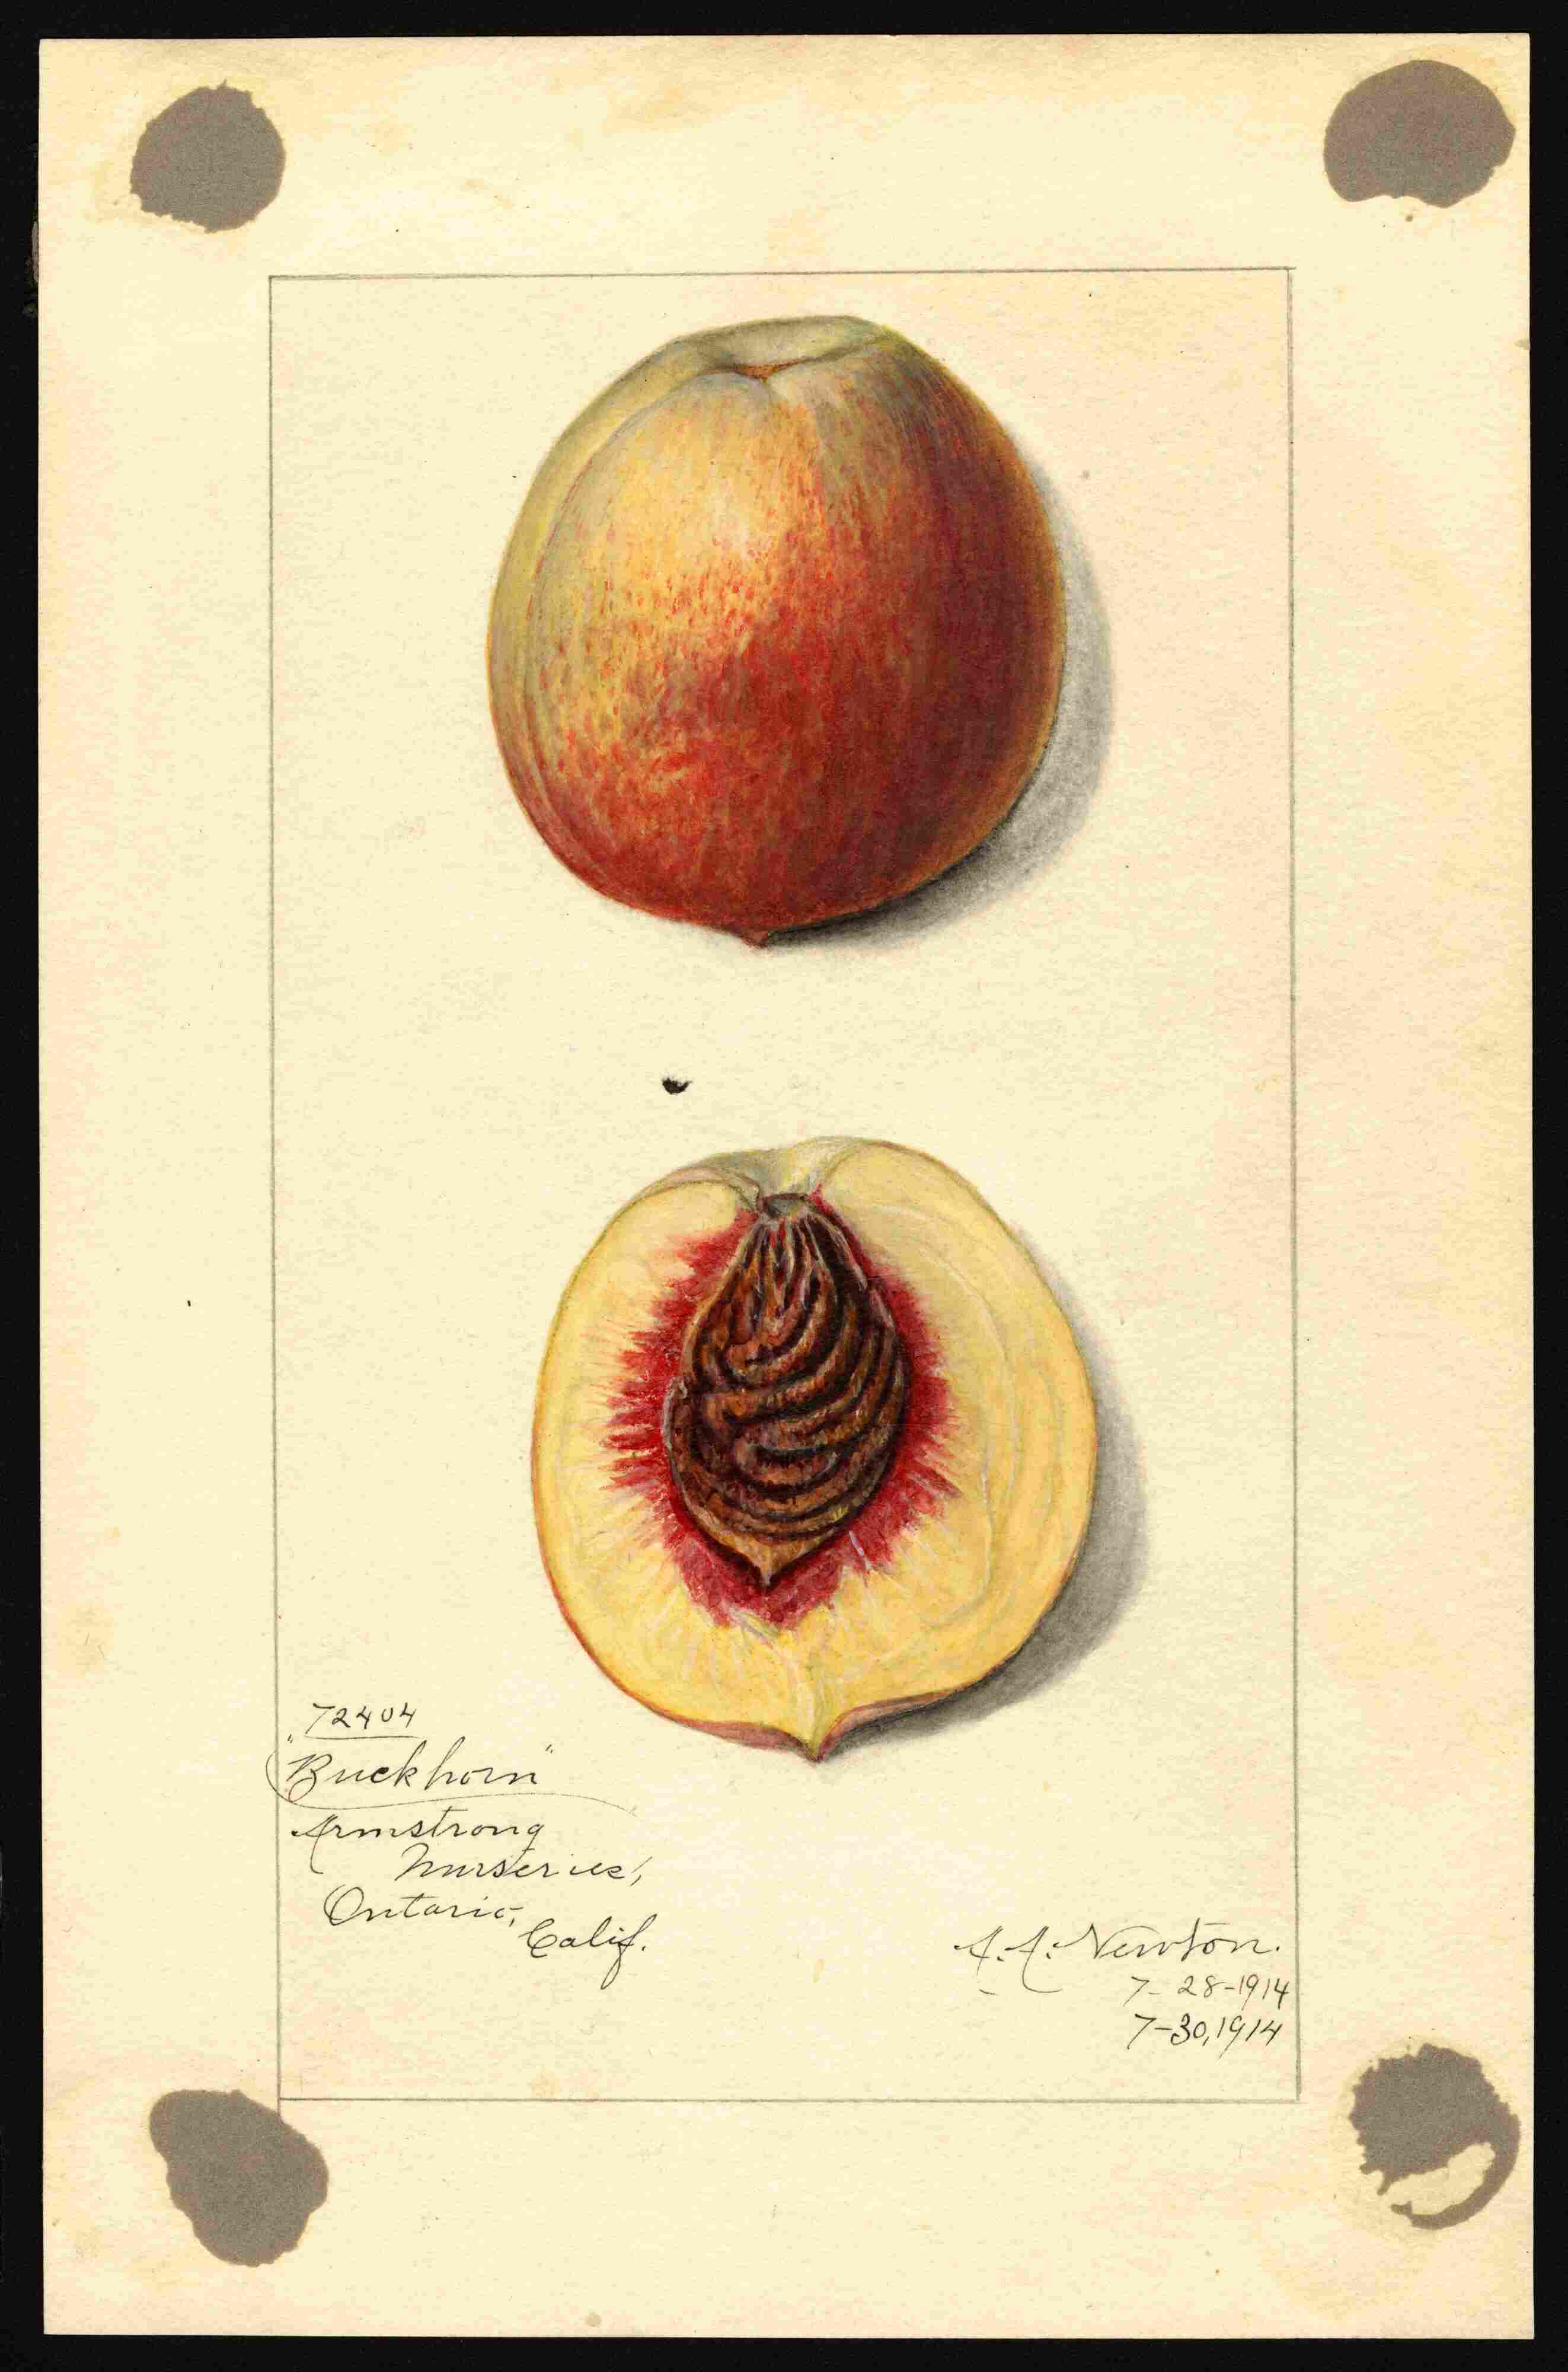 72404
"Buckhorn"
Armstrong
Nurseries,
Ontario,
Calif.
A. A. Newton.
7-28-1914
7-30,1914